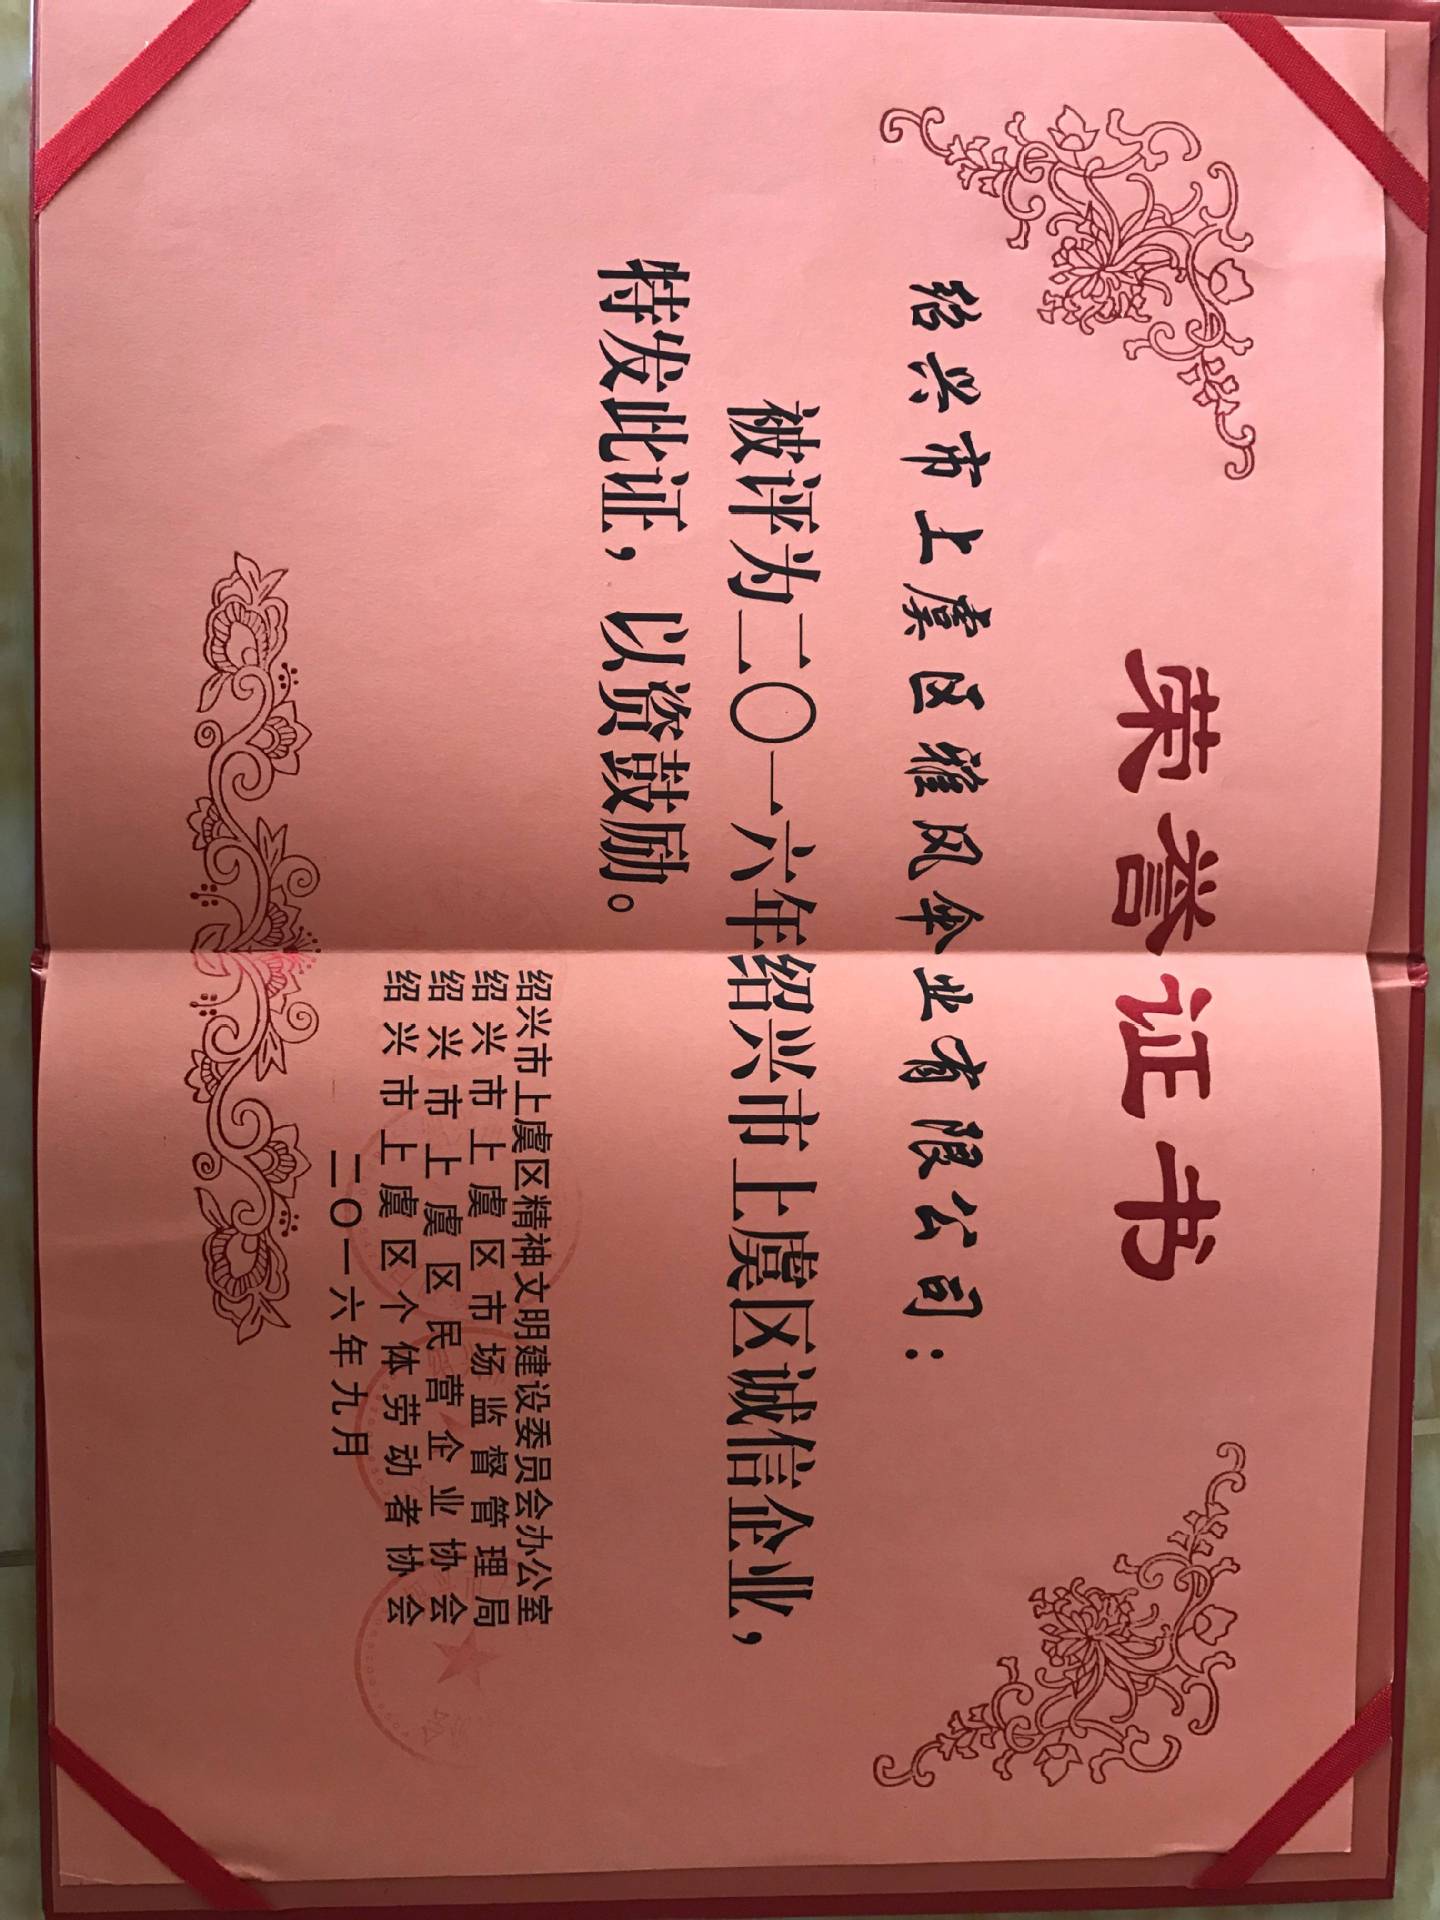 荣誉证书
绍兴市上虞区雅风伞业有限公司：
被评为二〇一六年绍兴市上虞区诚信企业，
特发此证，以资鼓励。
绍兴市上虞区精神文明建设委员会办公室
绍兴市上虞区市场监督管理局
绍兴市上虞区民营企业协会
绍兴市上虞区个体劳动者协会
二〇一六年九月